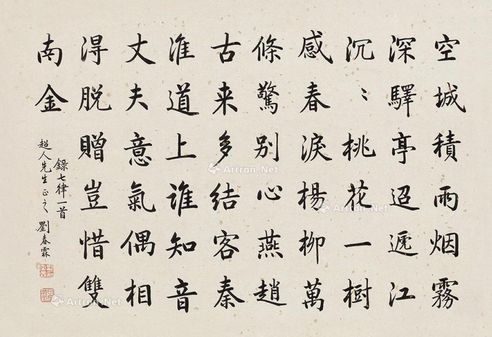 空城積雨烟霧
深驛亭迢遞江
沉〻桃花一樹
感春淚楊柳萬
條驚別心燕趙
古来多結客秦
淮道上誰知音
丈夫意氣偶相
得脫贈豈惜雙
南金
錄七律一首
超人先生正之 劉春霖
Artron.Net
Artron.Net
Artron.Net
Artron.Net